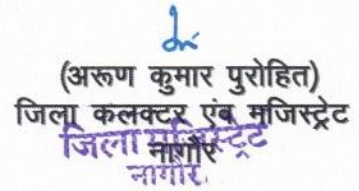 (अरूण कुमार पुरोहित)
जिला कलक्टर एंव मजिस्ट्रेट
जिला मजिस्ट्रेट
नागौर
नागौर